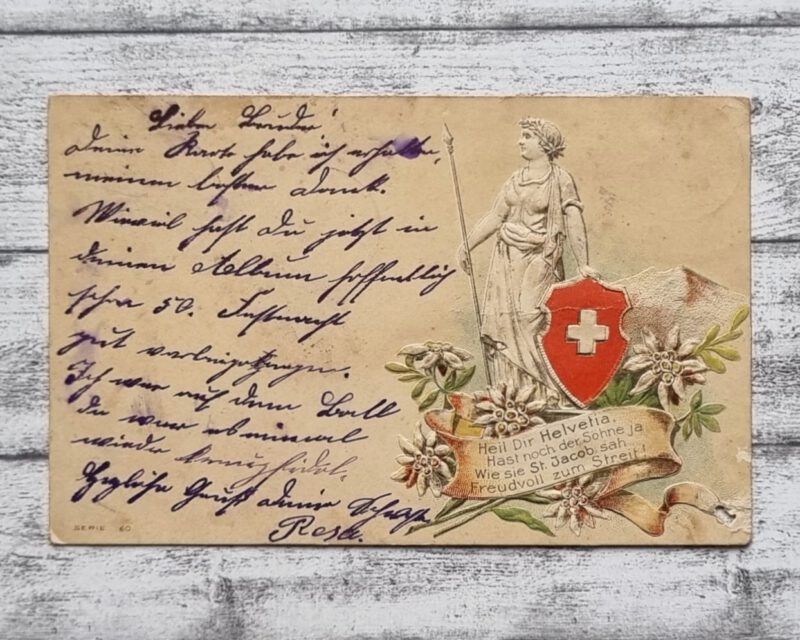 Liebe Bruder!
Deine Karte habe ich erhalten,
meinen besten Dank.
Wieviel hast Du jetzt in
deinem Album hoffentlich
schon 50. Fastnacht
gut
Ich war auf dem Ball
da war es einmal
wieder
Herzliche Gruss deine
Rosa.
Heil Dir Helvetia,
Hast noch der Söhne ja
Wie sie St. Jacob sah,
Freudvoll zum Streit!
SERIE 60